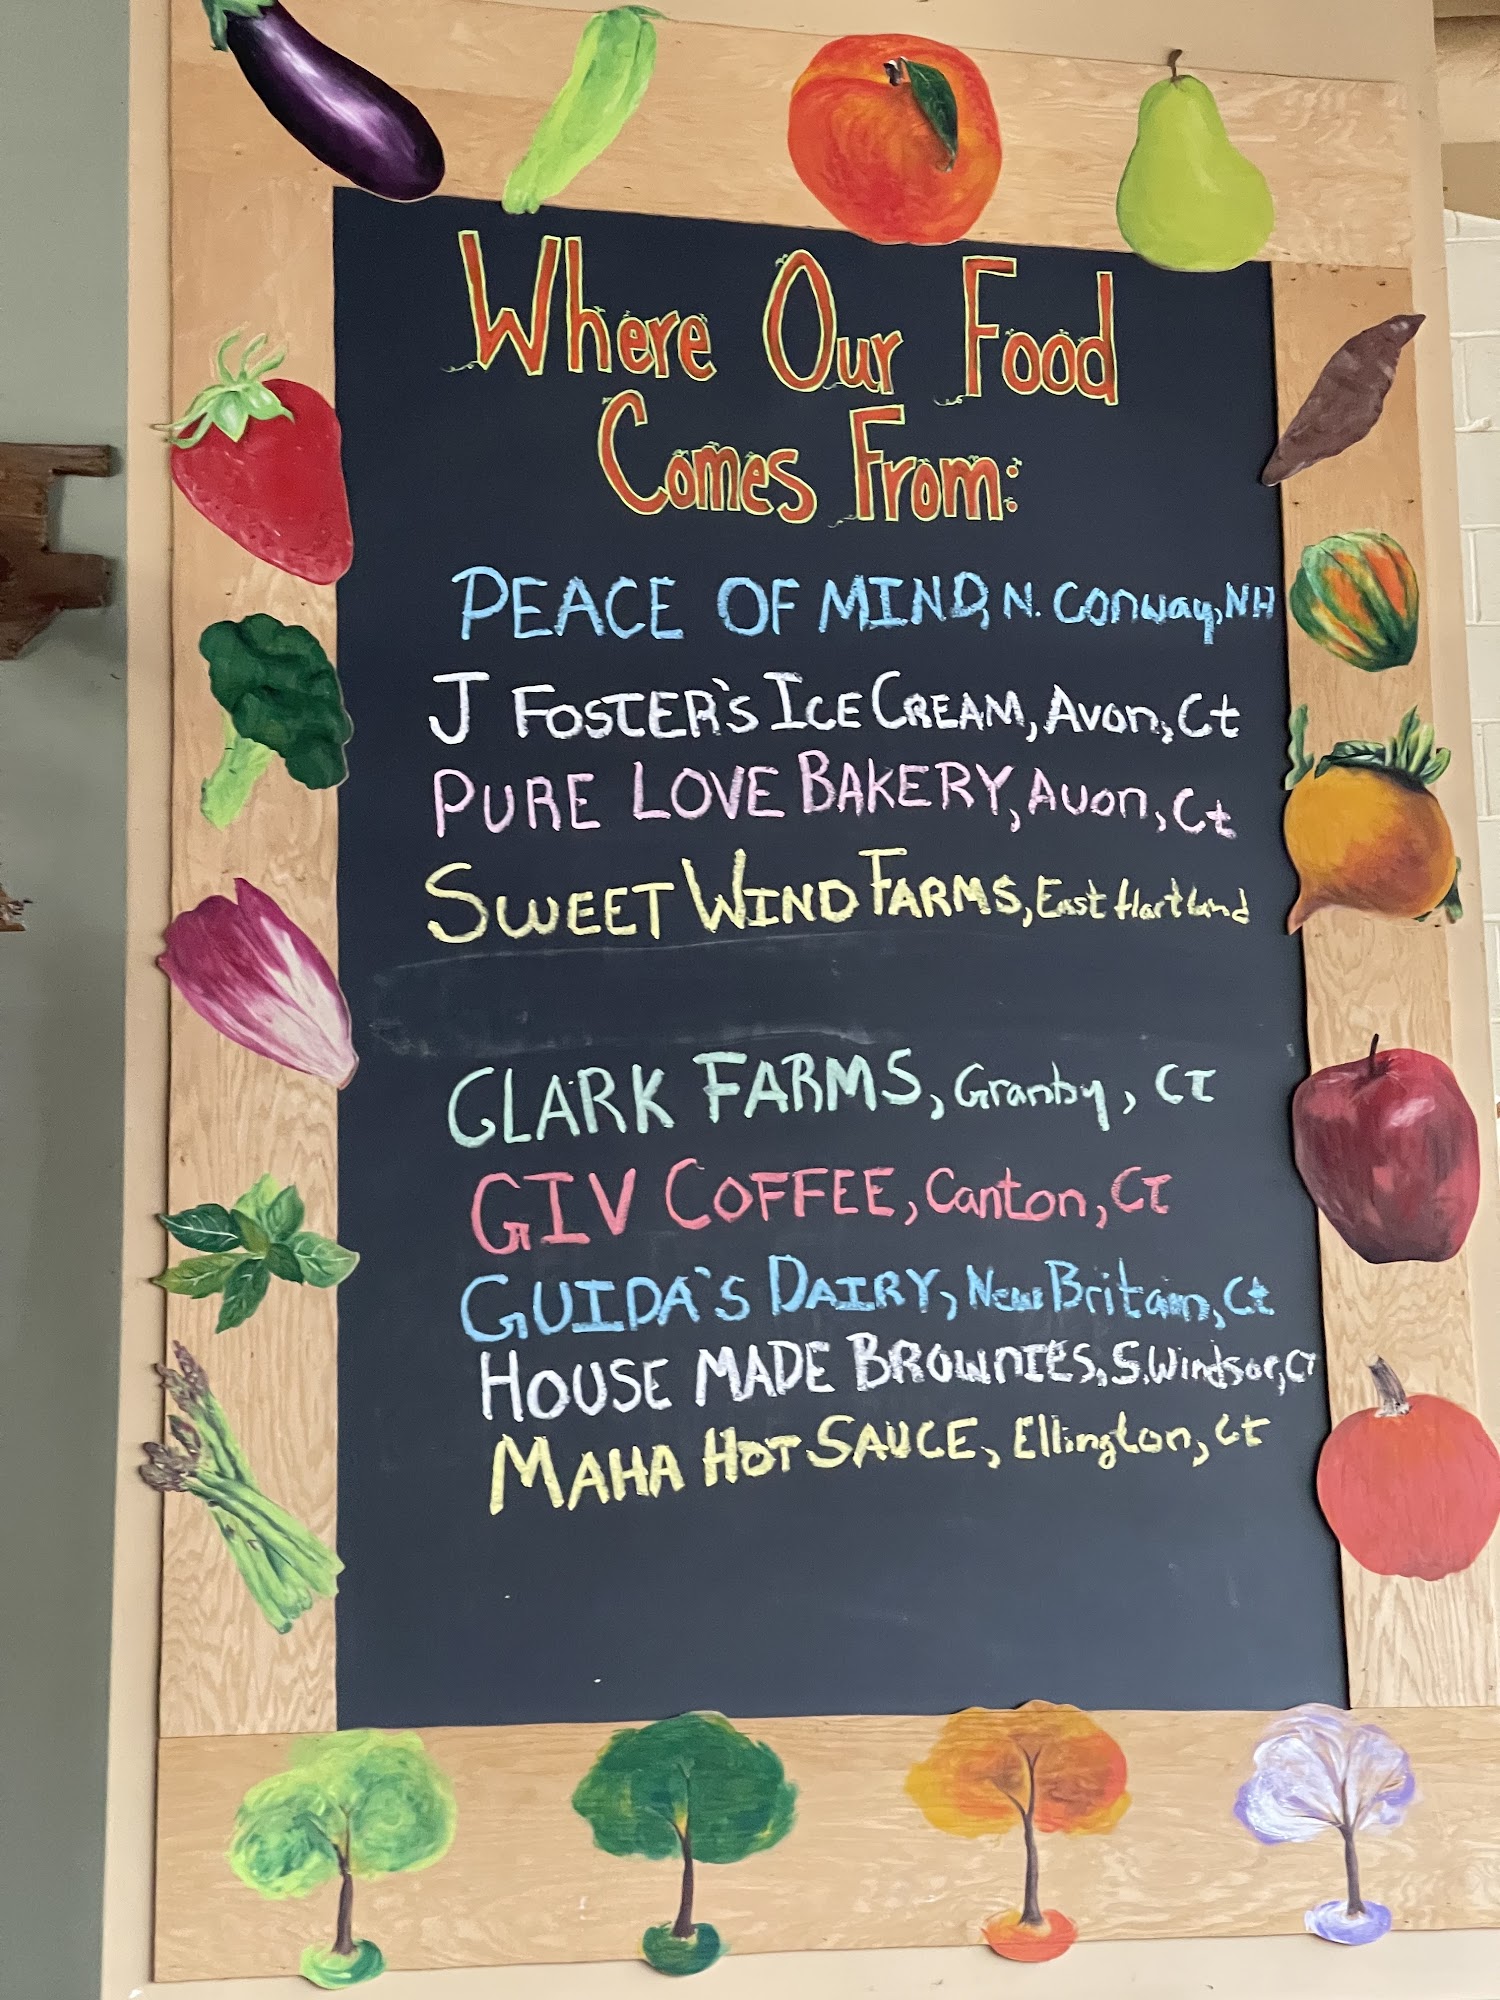 Where Our Food
Comes From:
PEACE OF MIND, N. Conway, NH
J FOSTER'S ICE CREAM, Avon, Ct
PURE LOVE BAKERY, Avon, Ct
SWEET WIND FARMS, East Hartland
CLARK FARMS, Granby, CT
GIV COFFEE, Canton, CT
GUIDA'S DAIRY, New Britain, Ct
HOUSE MADE BROWNIES, S. Windsor, CT
MAHA HOT SAUCE, Ellington, Ct